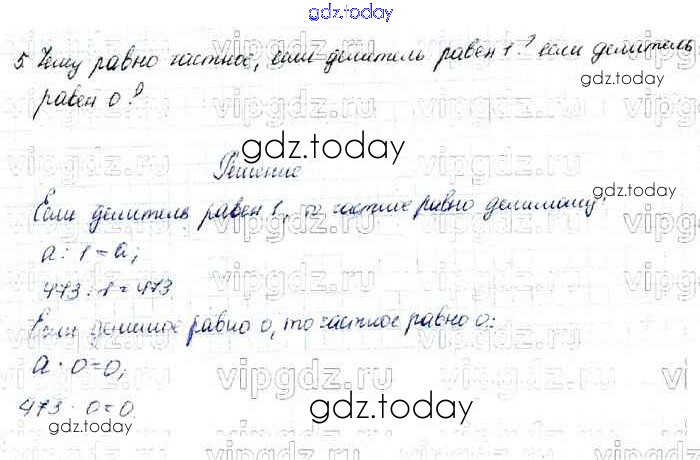 gdz.today
5. Чему равно частное, если делитель равен 1? если делитель
gdz.today
равен 0?
vipgdz.ru
gdz.today
Решение
gdz.today
Если делитель равен 1, то частное равно делимому:
a : 1 = a;
vipgdz.ru
473 : 1 = 473.
Если делимое равно 0, то частное равно 0:
a · 0 = 0;
vipgdz.ru
473 · 0 = 0.
gdz.today
gdz.today